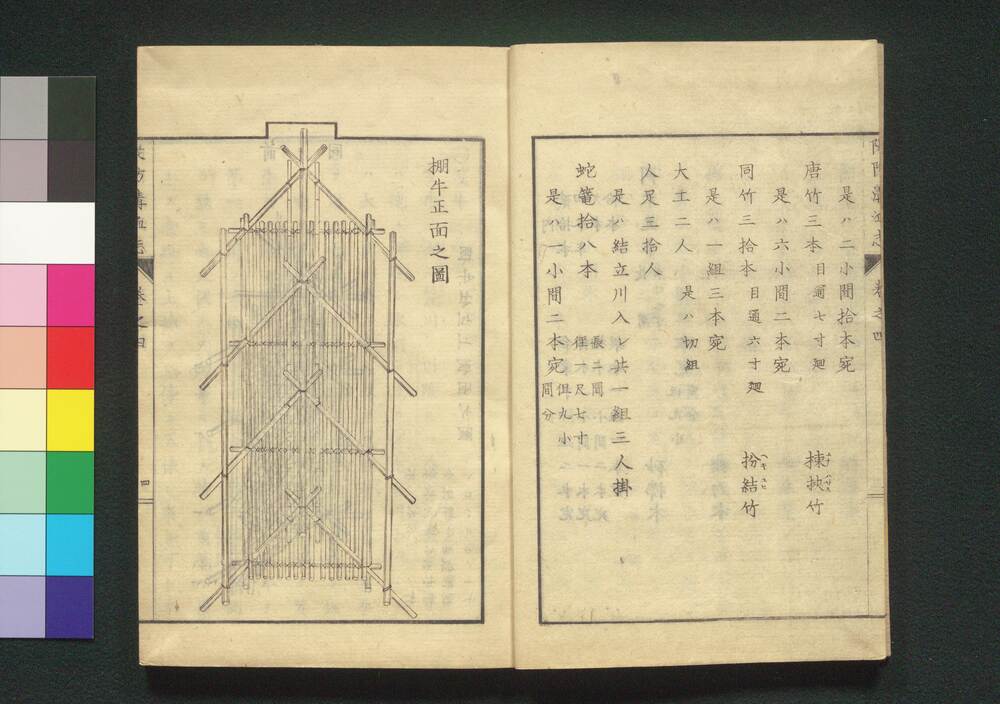 是ハ二小間拾本宛
唐竹三本 目通七寸廻 揀抰竹
是ハ六小間二本宛
同竹三拾本 目通六寸廻 扮結竹
是ハ一組三本宛
大工二人 是ハ切組
人足三拾人
是ハ結立川入レ共一組三人掛
蛇篭拾八本 長二間 径一尺七寸
是ハ一小間二本宛 但九小間分
巻之四
棚牛正面之圖
巻之四
四